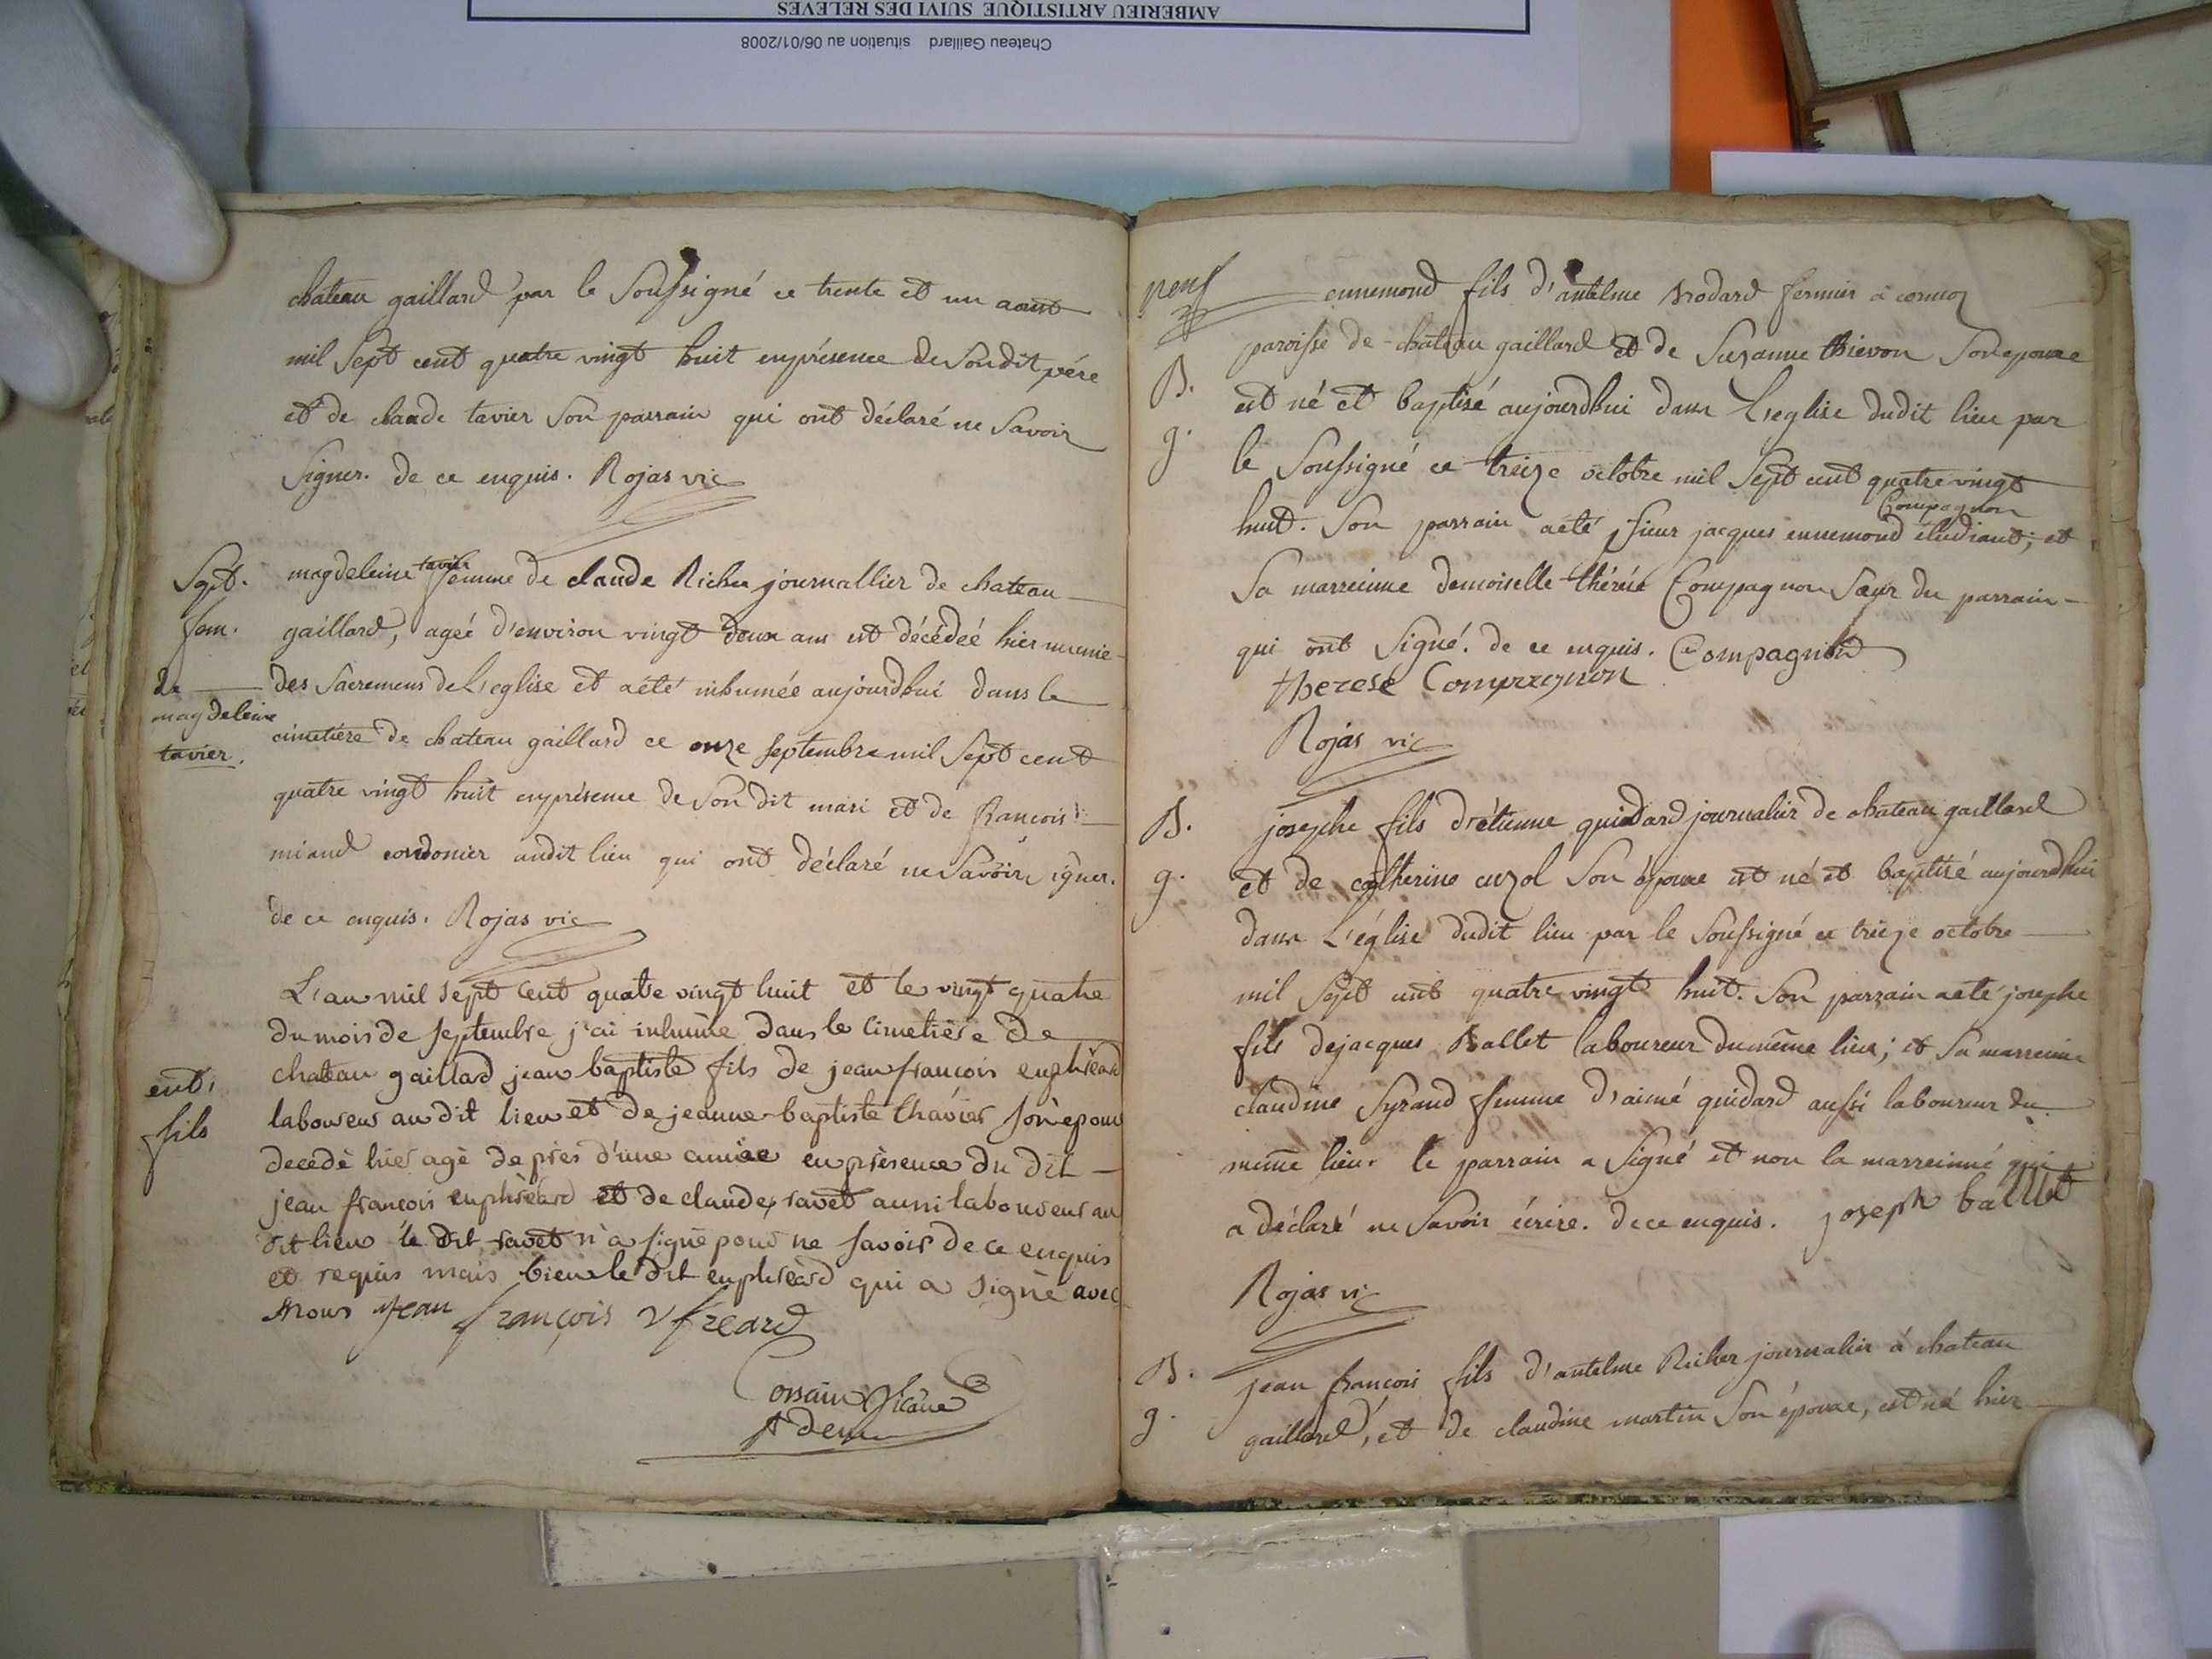 AMBERIEU ARTISTIQUE SUIVI DES RELEVES
Chateau Gaillard situation au 06/01/2008
chateau gaillard par le Soussigné ce trente et un aout
mil Sept cent quatre vingt huit enprésence de Sondit pére
et de claude tavier Son parrain qui ont déclaré ne Savoir
Signer. de ce enquis. Rojas vic
Sept.
fem.
de
magdeleine
tavier.
magdeleine tavier femme de claude Richer journallier de chateau
gaillard, ageé d'environ vingt deux ans est décédeé hier munie
des Sacremens de L'eglise et aété inhumée aujourdhui dans le
cimetiére de chateau gaillard ce onze septembre mil Sept cent
quatre vingt huit enprésence de Son dit mari et de francois
miand cordonier audit lieu qui ont déclaré ne Savoir signer.
de ce enquis. Rojas vic
ent.
fils
L'an mil sept cent quatre vingt huit et le vingt quatre
du mois de septembre j'ai inhumè dans le cimetière de
chateau gaillard jean baptiste fils de jean francois euphrèard
laboureur au dit lieu et de jeanne-baptiste thavier son epouse
decedè hier agè de près d'une annèe en prèsence du dit
jean francois euphrèard et de claude ravet aussi laboureur au
dit lieu le dit ravet n'a signè pour ne savoir de ce enquis
et requis mais bien le dit euphrèard qui a signè avec
nous jean françois Ufreard
Corsain Vicaire
Adem
neuf
B.
g.
ennemond fils d'antelme Brodard fermier à cormoz
paroisse de chateau gaillard et de Suzanne thievon Son epouse
est né et baptisé aujourdhui dans L'eglise dudit lieu par
le Soussigné ce treize octobre mil Sept cent quatre vingt
huit. Son parrain aété sieur jacques ennemond Compagnon étudiant; et
Sa marreinne demoiselle thérése Compagnon Sœur du parrain
qui ont Signé. de ce enquis. Compagnon
therese Compagnon
Rojas vic
B.
g.
josephe fils d'étienne guidard journalier de chateau gaillard
et de catherine cuzol Son épouse est né et baptisé aujourdhui
dans L'église dudit lieu par le Soussigné ce treize octobre
mil Sept cent quatre vingt huit. Son parrain aété josephe
fils dejacques Ballet laboureur dumême lieu; et Sa marreinne
claudine Syrand femme d'aimé guidard aussi laboureur du
même lieu. le parrain a Signé et non la marreinne qui
a déclaré ne Savoir écrire. dece enquis. joseph ballet
Rojas vic
B.
g.
jean francois fils d'antelme Richer journalier à chateau
gaillard, et de claudine martin Son épouse, est né hier